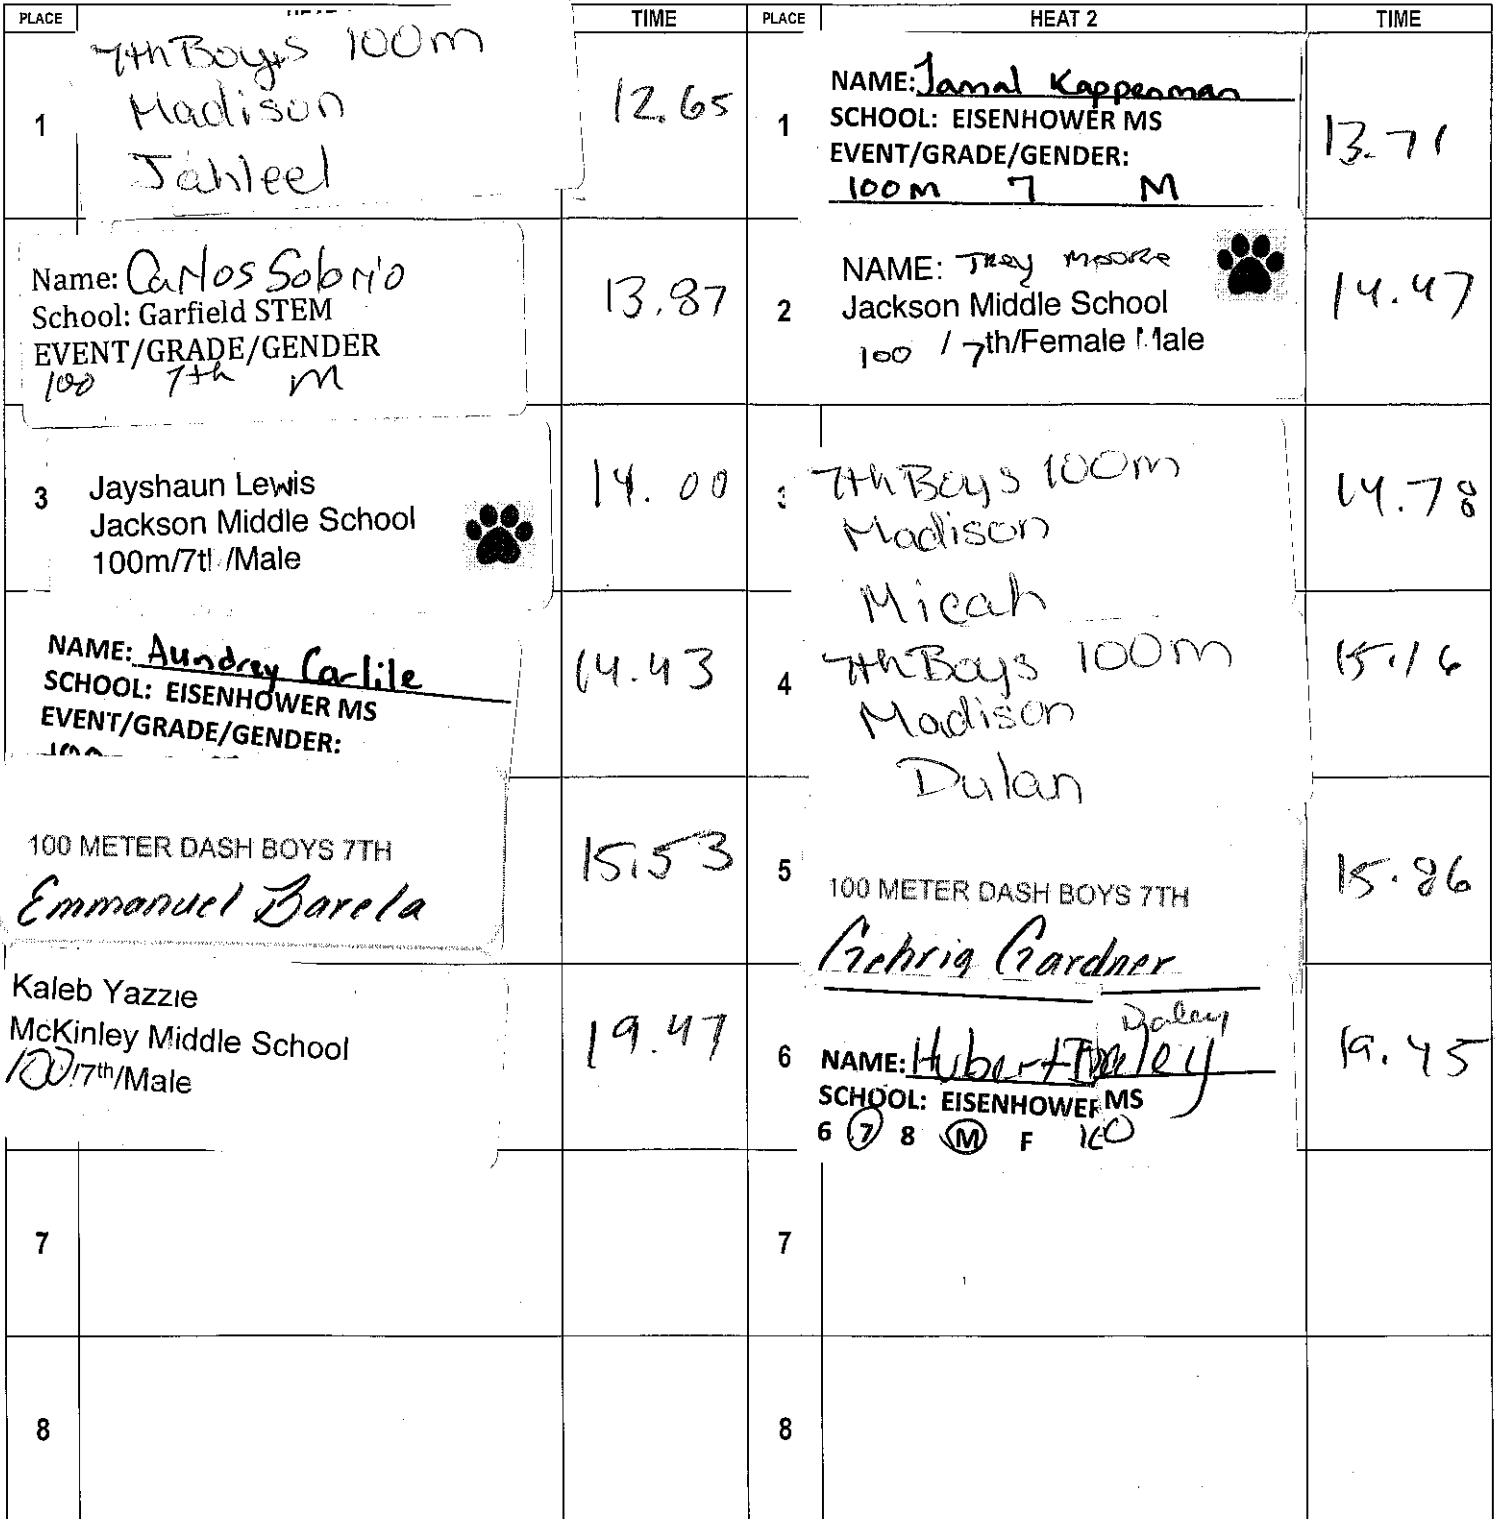 PLACE
TIME
1
7th Boys 100m
Madison
Jahleel
12.65
Name: Carlos Sobrio
School: Garfield STEM
EVENT/GRADE/GENDER
100 7th M
13.87
3
Jayshaun Lewis
Jackson Middle School
100m/7t /Male
14.00
NAME: Aundrey Carlile
SCHOOL: EISENHOWER MS
EVENT/GRADE/GENDER:
14.43
100 METER DASH BOYS 7TH
Emmanuel Barela
15.53
Kaleb Yazzie
McKinley Middle School
100/7th/Male
19.47
7
8
PLACE HEAT 2 TIME
1
NAME: Jamal Kappenman
SCHOOL: EISENHOWER MS
EVENT/GRADE/GENDER:
100m 7 M
13.71
2
NAME: Trey Moore
Jackson Middle School
100 / 7th/Female Male
14.47
7th Boys 100m
Madison
Micah
14.78
4
7th Boys 100m
Madison
Dulan
15.16
5
100 METER DASH BOYS 7TH
Gehrig Gardner
15.86
6
Daley
NAME: Hubert Daley
SCHOOL: EISENHOWER MS
6 7 8 M F 100
19.45
7
8